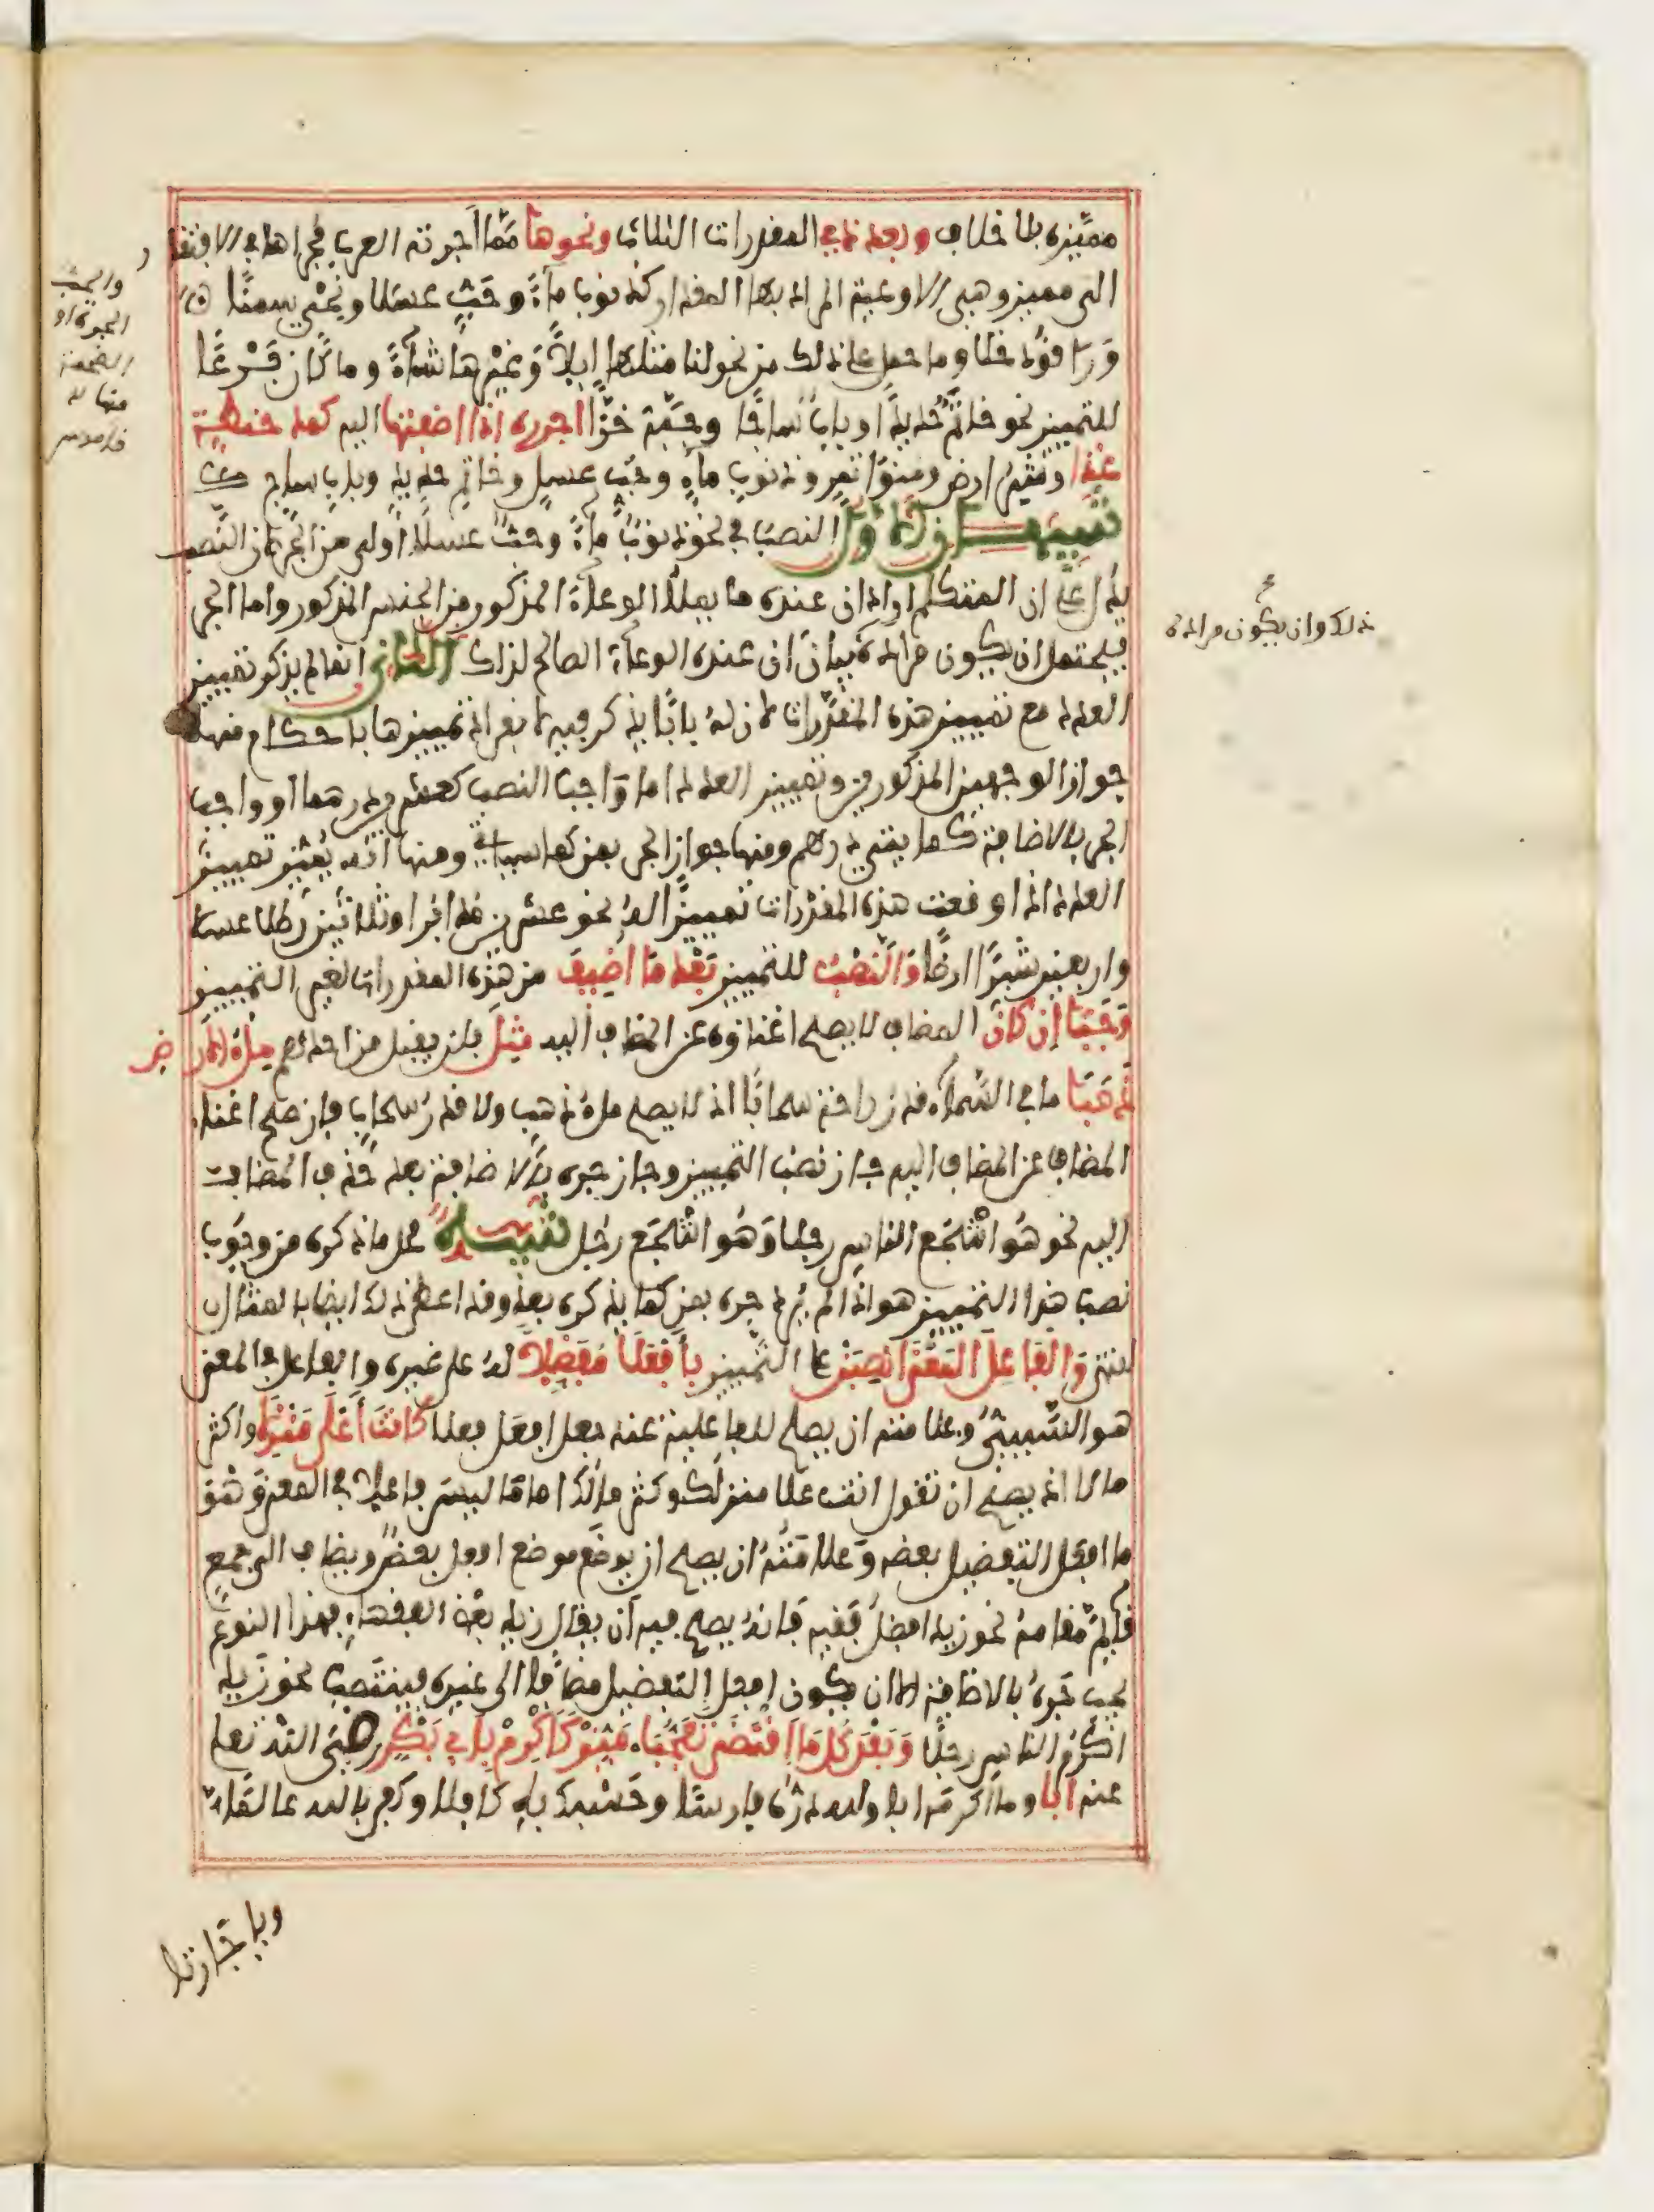 مميزه بلا خلاف وبعد ذي المقدرات الثلاث ونحوها مما أجرته العرب مجراها في الافتقار
الى مميز وهي الاوعية المراد بها المقدار كذنوب ماء وحب عسلا ونحي سمنا
وراقود خلا وما حمل على ذلك من نحو لنا مثلها ابلا وغيرها شاء وما كان فرعا
للتمييز نحو خاتم حديدا او باب ساجا وجبة خزا اجرره اذا اضفتها اليه كمد حنطة
غذا وشبر ارض ومنوا تمر وذنوب ماء وحب عسل وخاتم حديد وباب ساج
تنبيهان الاول النصب في نحو ذنوب ماء وحب عسلا أولى من الجر لان النصب
يدل على ان المتكلم اراد ان عنده ما يملأ الوعاء المذكور من الجنس المذكور واما الجر
فيحتمل ان يكون مراده بيان ان عنده الوعاء الصالح لذلك الثاني انما لم يذكر تمييز
العدد مع تمييز هذه المقدرات لان له بابا يذكر فيه لانفراد تمييزها باحكام منها
جواز الوجهين المذكورين وتمييز العدد اما واجب النصب كعشرين درهما أو واجب
الجر بالاضافة كمائتي درهم ومنها جواز الجر بمن كما سيأتي ومنها أنه يميز تمييز
العدد اذا وقعت هذه المقدرات تمييزا له نحو عشرين مد ابرا وثلاثين رطلا عسلا
واربعين شبرا ارضا والنصب للتمييز بعد ما أضيف من هذه المقدرات لغير التمييز
وجبا إن كان المضاف لا يصح اغناؤه عن المضاف اليه مثل فلن يقبل من احدهم ملء الارض
ذهبا ما في السماء قدر راحة سحابا اذ لا يصح ملء ذهب ولا قدر سحاب فإن صح اغناء
المضاف عن المضاف اليه جاز نصب التمييز وجاز جره بالاضافة بعد حذف المضاف
اليه نحو هو اشجع الناس رجلا وهو اشجع رجل تنبيه محل ما ذكره من وجوب
نصب هذا التمييز هو اذا لم يرد جره بمن كما يذكره بعد وقد اعطى ذلك ايضا بالمثال
انتهى والفاعل المعنى انصبن على التمييز بأفعلا مفضلا له على غيره والفاعل في المعنى
هو السببي وعلامته ان يصح للفاعلية عند جعل افعل فعلا كأنت أعلى منزلا واكثر
مالا اذ يصح ان تقول انت علا منزلك وكثر مالك اما ما ليس فاعلا في المعنى وهو
ما افعل التفضيل بعضه وعلامته ان يصح ان يوضع موضع افعل بعض ويضاف الى جمع
قائم مقامه نحو زيد افضل فقيه فانه يصح فيه أن يقال زيد بعض الفقهاء فهذا النوع
يجب جره بالاضافة الا ان يكون افعل التفضيل مضافا الى غيره فينتصب نحو زيد
اكرم الناس رجلا وبعد كل ما اقتضى تعجبا ميز كأكرم بأبي بكر رضي الله تعلى
عنه أبا وما اكرمه ابا ولله دره فارسا وحسبك به كافلا وكفى بالله عالما
ويا جارتا
والحب
الجرة او
الضخمة
منها
قاموس
ذلك وان يكون مراده